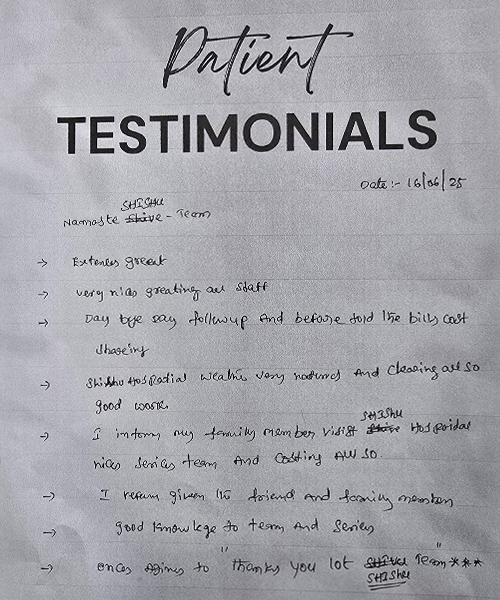 Patient
TESTIMONIALS
Date:- 16/06/25
SHISHU
Namaste - Team
→ greeat
→ very nices greating all staff
→ Day bye say followup And before told the bills cost
shareing
→ Shishu Hospadial very And Clearing all so
good work
→ I inform my family member visist SHISHU Hospridal
nices Series team And Costing All so.
→ I return given the friend And family members
→ good Knowlege to team And Series
→ onces Agines to "thanks you lot SHISHU Team"***